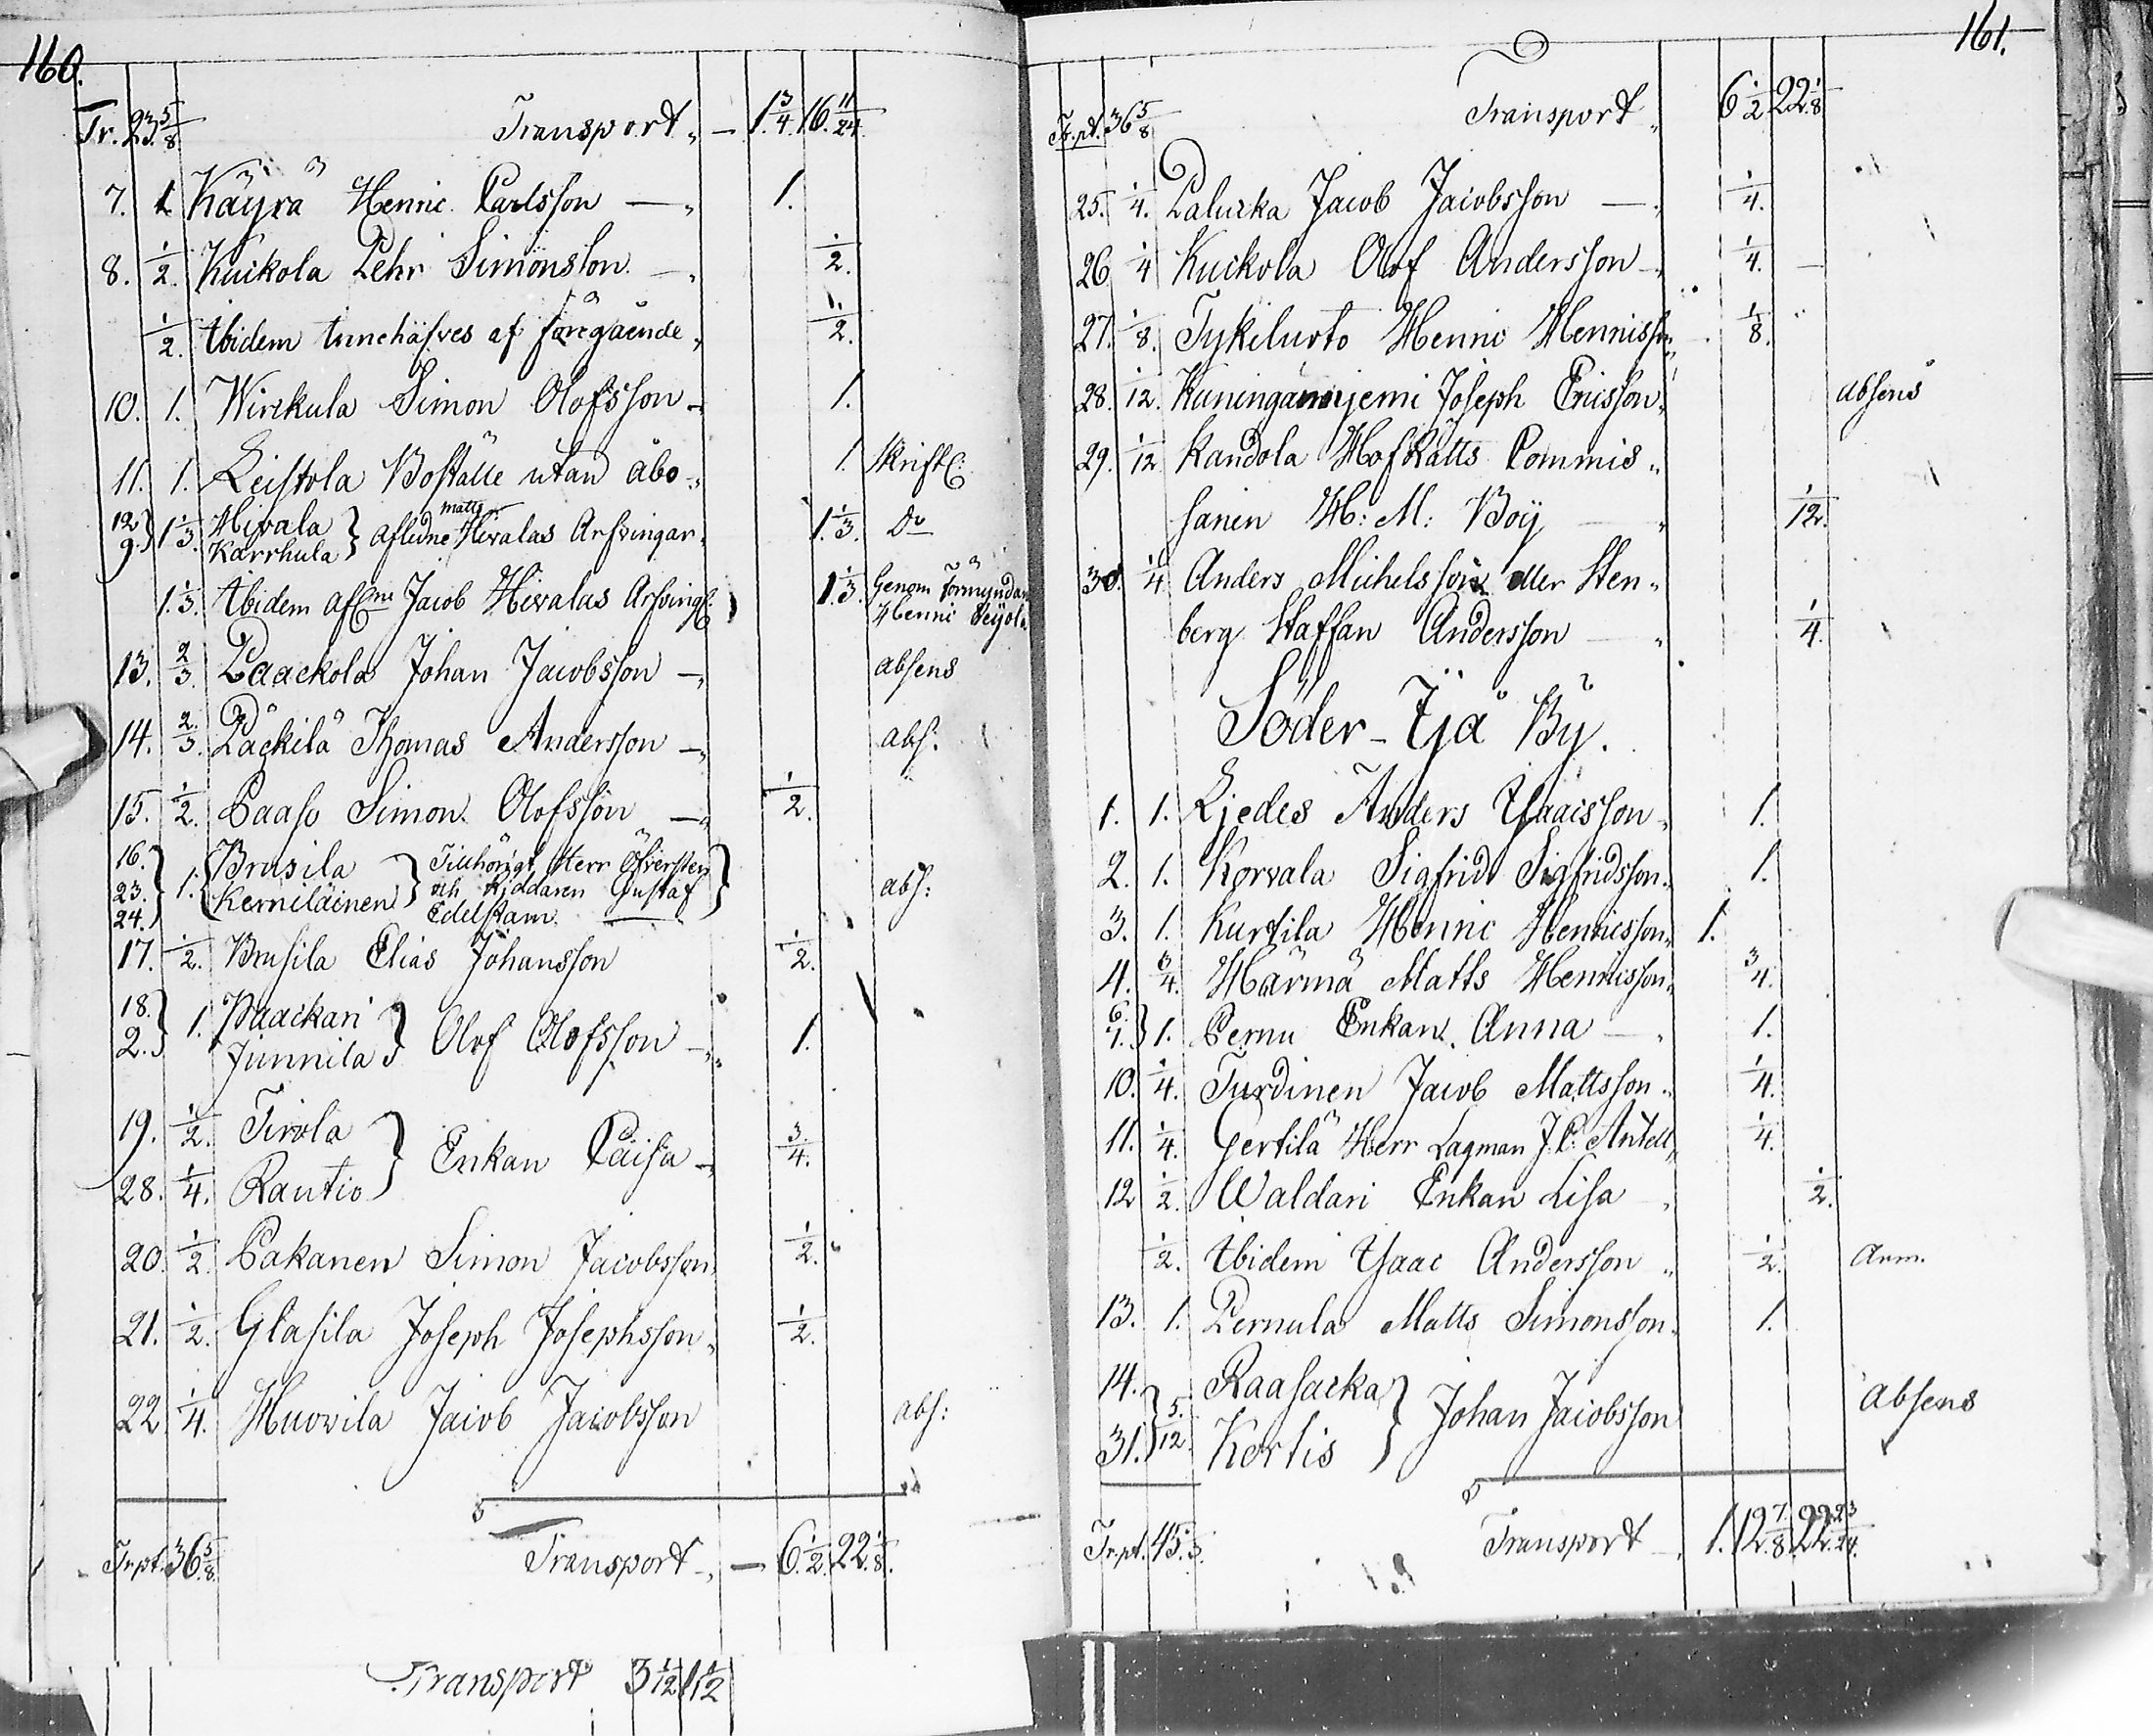 160.
Tr. 23 5/8 Transport „ — 1 3/4. 16. 11/24.
7. 1. Käyrä Henric Carlsson — „ 1.
8. 1/2. Kuckola Pehr Simonsson — „ 1/2.
1/2. Ibidem innehafves af föregående „ 1/2.
10. 1. Wirckula Simon Olofsson — 1.
11. 1. Leistola Boställe utan åbo „ 1. Skriftl:
12. 9.} 1 1/3. Hivala Karrhula } Aflidne Matts Hivalas Arfvingar „ 1. 1/3. Do
1. 1/3. Ibidem Afl:ne Jacob Hivalas Arfving: 1. 1/3. Genom Förmyndar
Henric
13. 2/3. Paackola Johan Jacobsson — „ absens
14. 2/3. Päckilä Thomas Andersson — „ abs:
15. 1/2. Paaso Simon Olofsson — „ 1/2.
16. 23. 24.} 1. {Brusila Kerniläinen } Tillhörigt Herr Öfversten
och Riddaren Gustaf
Edelstam. — abs:
17. 1/2. Brusila Elias Johansson 1/2.
18. 2.} 1. Paackari Junnila } Olof Olofsson — „ 1.
19. 1/2. Tirola
28. 1/4. Rautio } Enkan Caisa — „ 3/4.
20. 1/2. Pakanen Simon Jacobsson „ 1/2.
21. 1/2. Glasila Joseph Josephsson „ 1/2.
22. 1/4. Huovila Jacob Jacobsson abs:
Trpt. 36 5/8. Transport „ — 6. 1/2. 22. 1/8.
Transport 3 1/12 1 1/2
161.
Tr.pt. 36 5/8 Transport „ 6 1/2 22. 1/8.
25. 1/4. Palucka Jacob Jacobsson — „ 1/4.
26. 1/4 Kuckola Olof Andersson — „ 1/4. —
27. 1/8. Tykeluoto Henric Henricsson „ 1/8.
28. 1/12. Kuninganniemi Joseph Ericsson „ absens
29. 1/12 Kandola HofRätts Commis „
sarien H: M: Boij — „ 1/12.
30. 1/4 Anders Michelsson eller Sten „
berg Staffan Andersson — „ 1/4.
Söder-Ijå By.
1. 1. Liedes Anders Isaacsson „ 1.
2. 1. Korvala Sigfrid Sigfridsson „ 1.
3. 1. Kurtila Henric Henricsson „ 1.
4. 3/4. Härmä Matts Henricsson „ 3/4.
6. 7.} 1. Pernu Enkan Anna — „ 1.
10. 1/4. Turdinen Jacob Mattsson „ 1/4.
11. 1/4. Gertilä Herr Lagman J. C: Antell „ 1/4.
12 1/2. Waldari Enkan Lisa — „ 1/2.
1/2. Ibidem Isaac Andersson „ 1/2. Anm.
13. 1. Pernula Matts Simonsson „ 1.
14. Raasacka
31. } 5/12. Kortis } Johan Jacobsson absens
Tr.pt. 45. 1/3. Transport — „ 1. 12. 7/8. 22. 23/24.